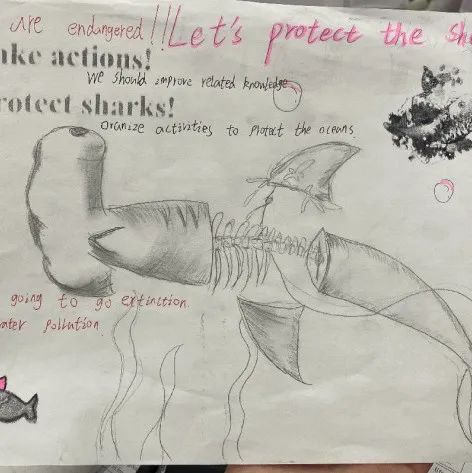 are endangered!! Let's protect the
actions!
We should improve related knowledge
protect sharks!
Oranize activities to protect the oceans
going to go extinction
pollution